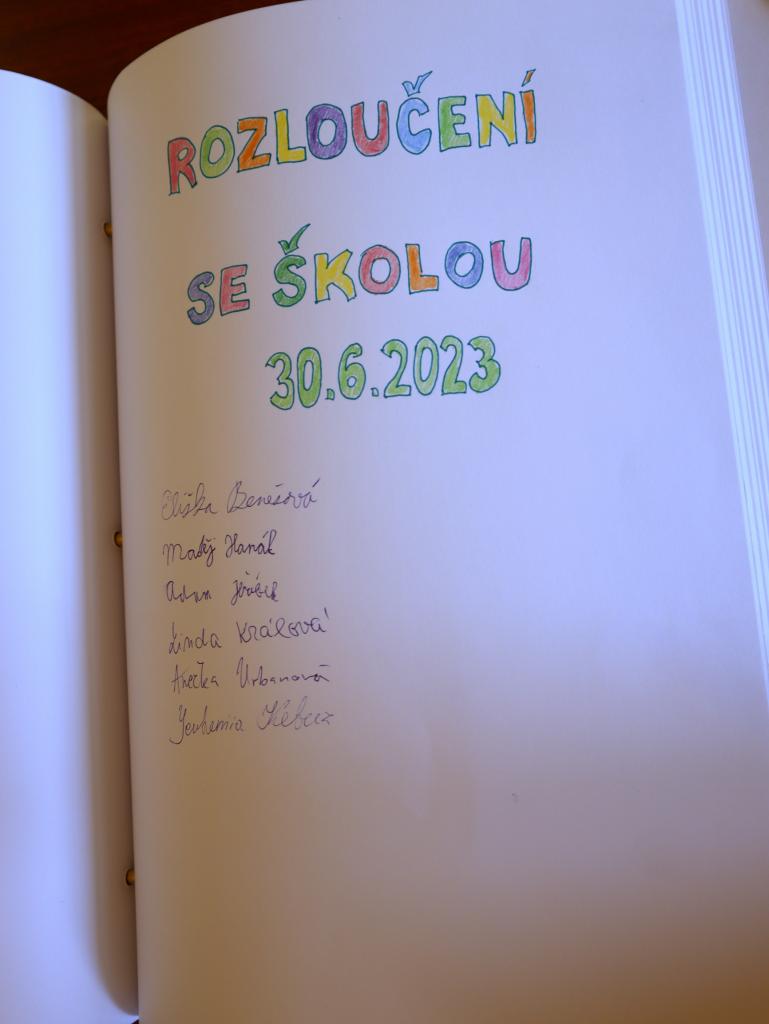 ROZLOUČENÍ
SE ŠKOLOU
30.6.2023
Eliška Benešová
Matěj Hanák
Adam Jeřábek
Linda Králová
Anežka Urbanová
Yevheniia